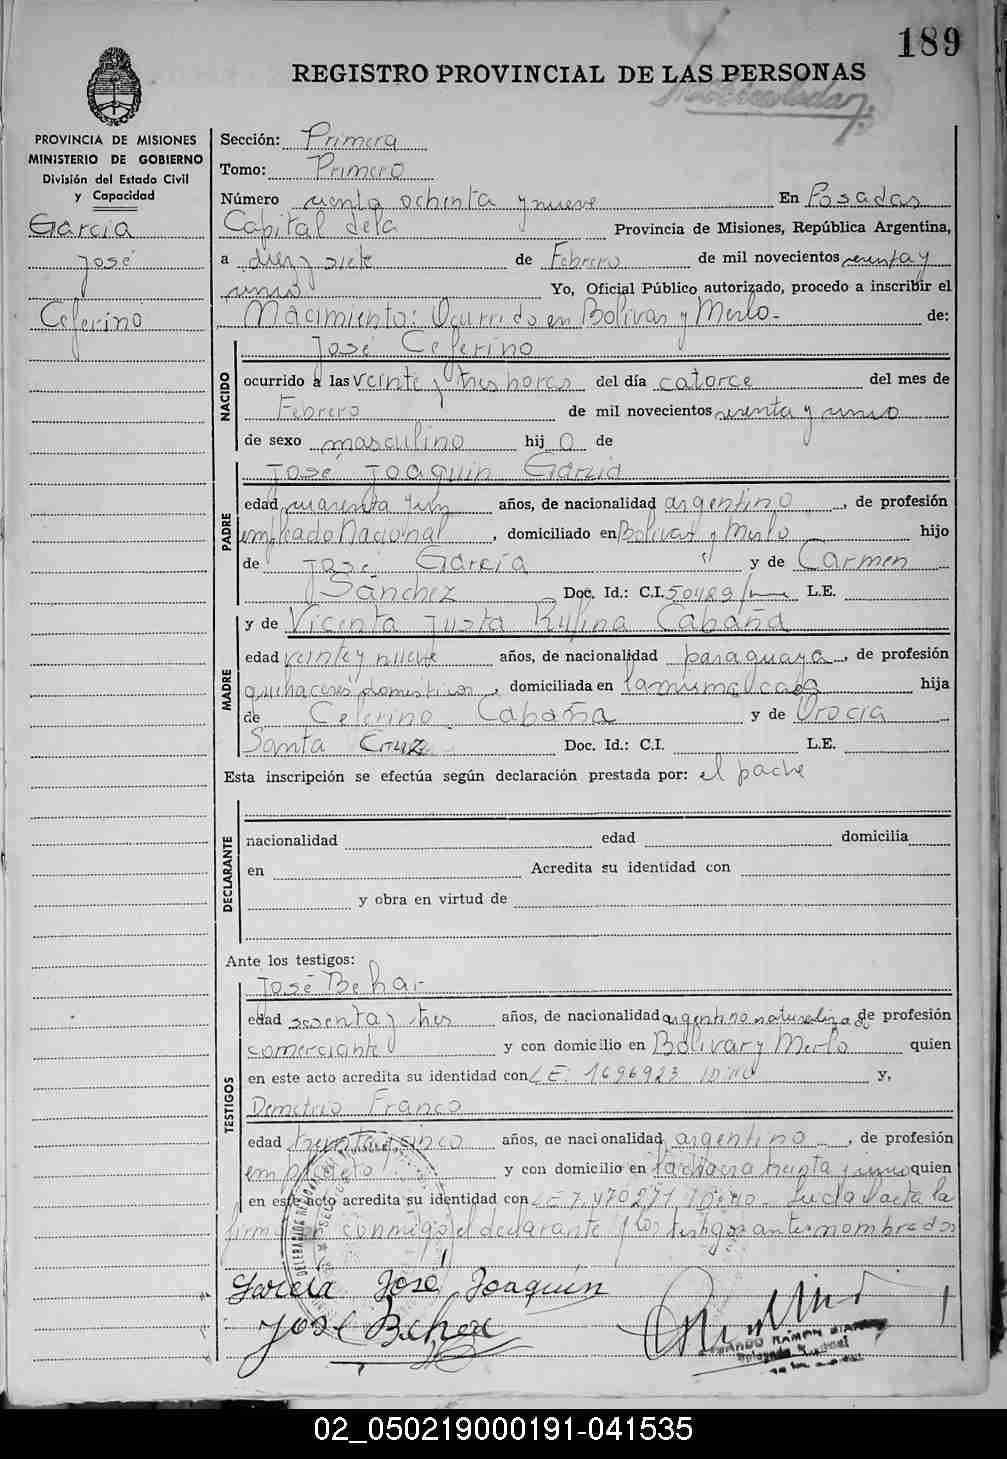 189
REGISTRO PROVINCIAL DE LAS PERSONAS
PROVINCIA DE MISIONES
MINISTERIO DE GOBIERNO
División del Estado Civil
y Capacidad
García
José
Ceferino
Sección: Primera
Tomo: Primero
Número ciento ochenta y nueve En Posadas
Capital dela Provincia de Misiones, República Argentina,
a diez y siete de Febrero de mil novecientos sesenta y
uno Yo, Oficial Público autorizado, procedo a inscribir el
Nacimiento: Ocurrido en Bolivar y Merlo- de:
NACIDO
José Ceferino
ocurrido a las veinte y tres horas del día catorce del mes de
Febrero de mil novecientos sesenta y uno
de sexo masculino hij o de
PADRE
José Joaquin Garcia
edad cuarenta y un años, de nacionalidad argentino, de profesión
empleado Nacional, domiciliado en Bolivar y Merlo hijo
de José García y de Carmen
Sánchez Doc. Id.: C.I. 50489 L.E.
MADRE
y de Vicenta Justa Rufina Cabaña
edad veinte y nueve años, de nacionalidad paraguaya, de profesión
quehaceres domesticos, domiciliada en la misma casa hija
de Ceferino Cabaña y de Orocia
Santa Cruz Doc. Id.: C.I. L.E.
Esta inscripción se efectúa según declaración prestada por: el padre
DECLARANTE
nacionalidad edad domicilia
en Acredita su identidad con
y obra en virtud de
Ante los testigos:
TESTIGOS
José Behar
edad sesenta y tres años, de nacionalidad argentino naturalizado de profesión
comerciante y con domicilio en Bolivar y Merlo quien
en este acto acredita su identidad con L E: 1696923 y,
Demetrio Franco
edad treinta y cinco años, de nacionalidad argentino, de profesión
empleado y con domicilio en treinta y uno quien
en este acto acredita su identidad con L E 7.470271 Leida el acta la
firman conmigo el declarante y los testigos antes nombrados
García José Joaquín
José Behar
02_050219000191-041535